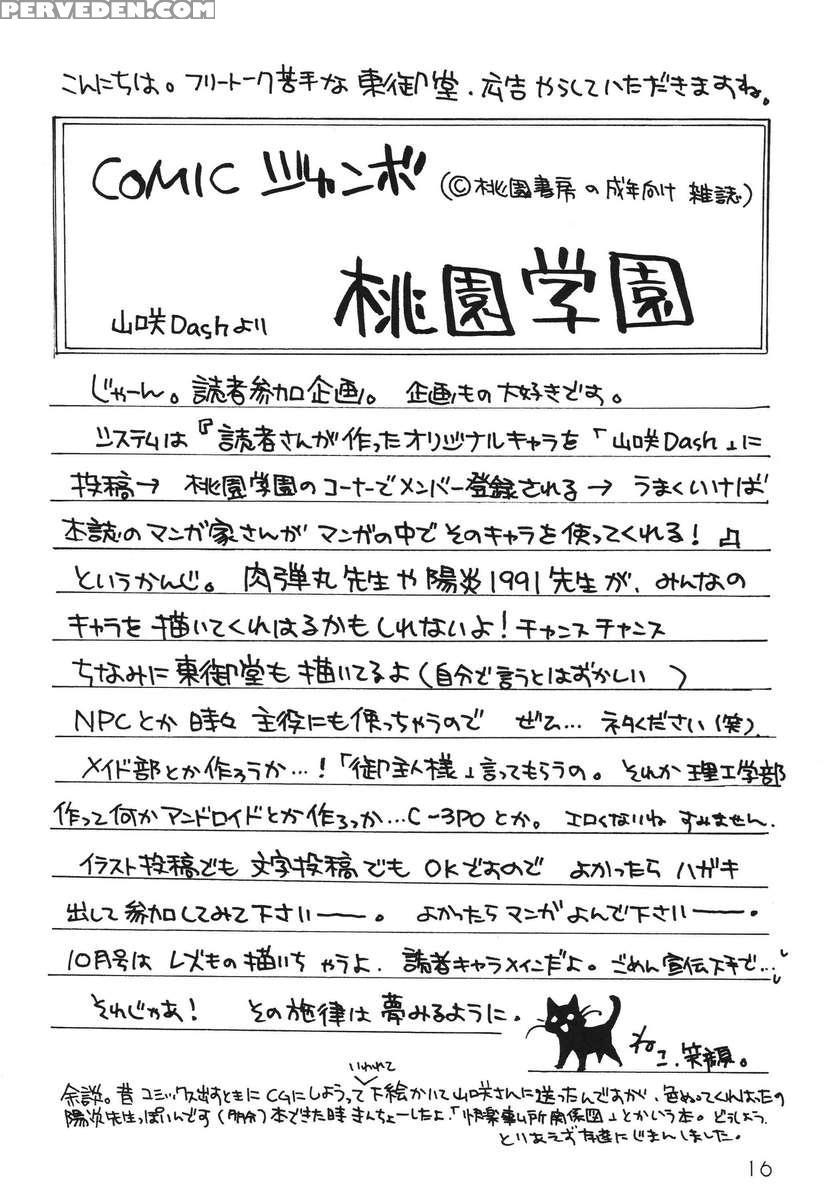 PERVEDEN.COM
こんにちは。フリートーク苦手な 東御堂、広告やらしていただきますね。
COMIC ジャンボ (©桃園書房の成年向け 雑誌)
山咲Dashより 桃園学園
じゃーん。読者参加企画。 企画もの大好きです。
システムは『読者さんが作ったオリジナルキャラを「山咲Dash」に
投稿→ 桃園学園のコーナーでメンバー登録される→ うまくいけば
本誌のマンガ家さんが マンガの中でそのキャラを使ってくれる!』
というかんじ。 肉弾丸先生や陽炎1991先生が、みんなの
キャラを描いてくれはるかもしれないよ!チャンスチャンス
ちなみに東御堂も描いてるよ(自分で言うとはずかしい )
NPCとか 時々 主役にも使っちゃうので ぜひ… ネタください(笑).
メイド部とか作ろうか…!「御主人様」言ってもらうの。それか 理工学部
作って何かアンドロイドとか作ろっか…C-3POとか。 エロくないね すみません.
イラスト投稿でも 文字投稿でもOKですので よかったら ハガキ
出して参加してみて下さいーー。 よかったらマンガよんで下さいーー.
10月号は レズもの描いちゃうよ. 読者キャラメインだよ。ごめん宣伝下手で…
それじゃあ! その施律は夢みるように.
ねこ.笑顔。
いわれて
余談。昔コミックス出すときにCGにしようって下絵かいて山咲さんに送ったんですが、色ぬってくれはったの
陽炎先生っぽいんです(多分)本できた時きんちょーしたよ.「快楽事ム所関係図」とかいう本。どうしよう.
とりあえず友達にじまんしました。
16